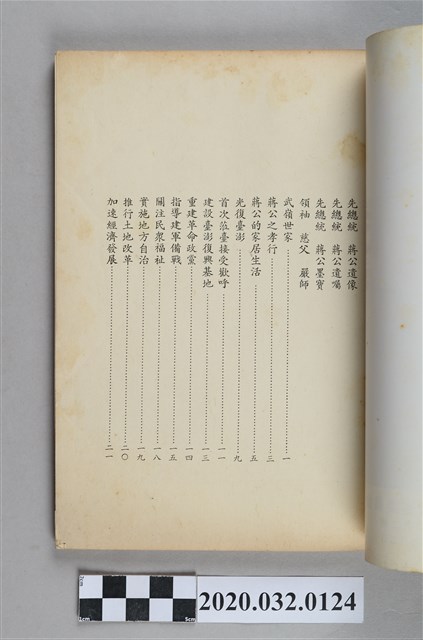 先總統　蔣公遺像
先總統　蔣公遺囑
先總統　蔣公墨寶
領袖　慈父　嚴師
武嶺世家……一
蔣公之孝行……三
蔣公的家居生活……五
光復臺澎……九
首次蒞臺接受歡呼……一一
建設臺澎復興基地……一三
重建革命政黨……一四
指導建軍備戰……一五
關注民衆福祉……一八
實施地方自治……一九
推行土地改革……二〇
加速經濟發展……二一
1cm
5cm
2020.032.0124